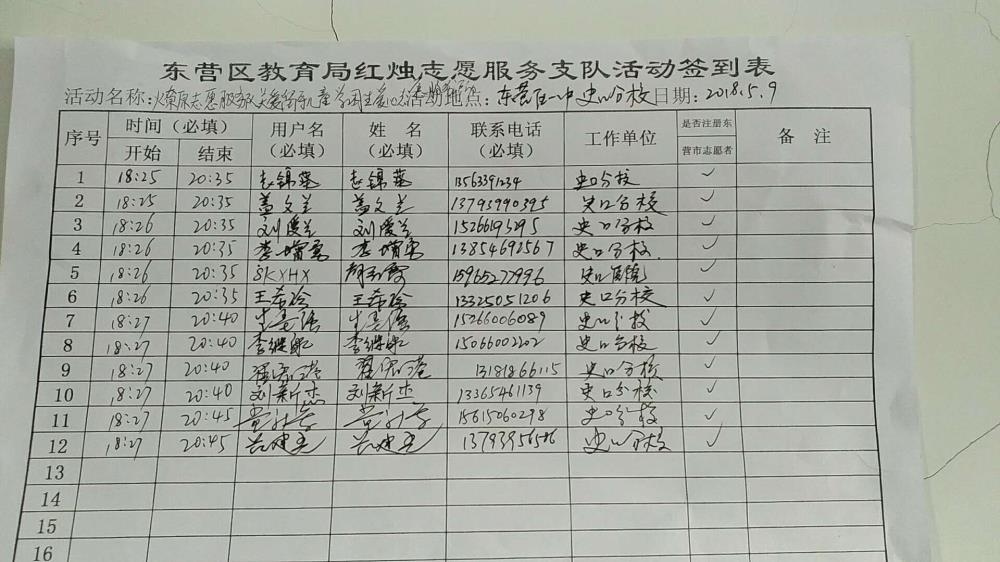 东营区教育局红烛志愿服务支队活动签到表
活动名称:燎原志愿服务队关爱留守儿童 活动地点:东营区一中史口分校 日期:2018.5.9
序号 时间（必填） 用户名（必填） 姓 名（必填） 联系电话（必填） 工作单位 是否注册东营市志愿者 备 注
开始 结束
1 18:25 20:35 13563391234 史口分校 ✓
2 18:25 20:35 盖文兰 盖文兰 13793990395 史口分校 ✓
3 18:26 20:35 刘爱兰 刘爱兰 15266193295 史口分校 ✓
4 18:26 20:35 13854692567 史口分校 ✓
5 18:26 20:35 SKYHX 15965277996 史口 ✓
6 18:26 20:35 王希玲 王希玲 13325051206 史口分校 ✓
7 18:27 20:40 15266006089 史口分校 ✓
8 18:27 20:40 李继敏 李继敏 15066002202 史口分校 ✓
9 18:27 20:40 13181866115 史口分校 ✓
10 18:27 20:40 刘新杰 刘新杰 13365461139 史口分校 ✓
11 18:27 20:45 15615060298 史口分校 ✓
12 18:27 20:45 史口分校 ✓
13
14
15
16